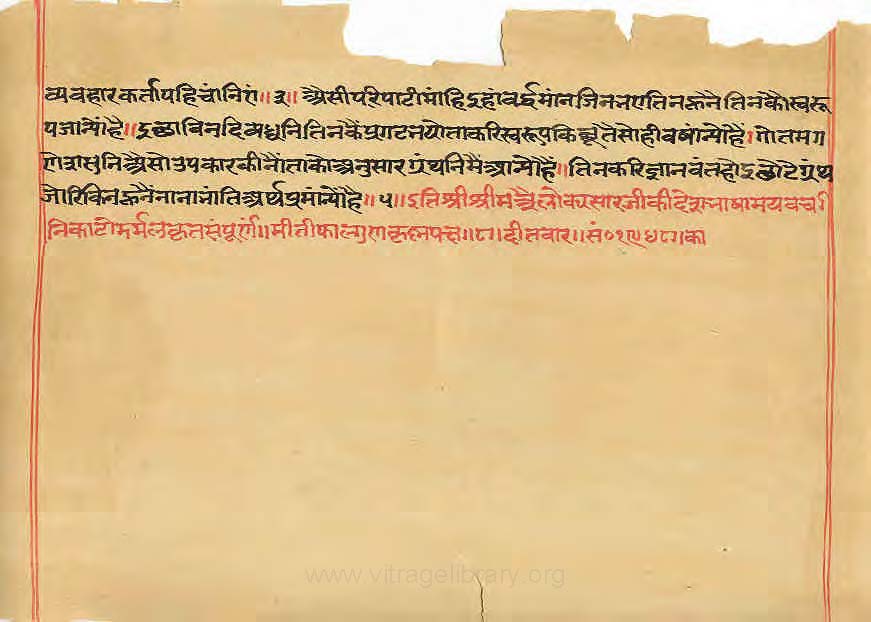 व्यवहारकर्तापहिचांनिए॥३॥ अैसीपरिपाटीमांहिइहांवर्द्धमांनजिनभएतिनकनैतिनकौस्वरू
पजान्यौहै॥इछाविनदिव्यध्वनितिनकैंप्रगटभयोताकरिस्वरूपकिछूतैसोहीवषांन्योहैं।गोतमग
णेशसुनिअैसोउपकारकीनौंताकोअनुसारग्रंथनिमैंआन्यौहै॥तिनकरिज्ञानवंतहोइछोटेग्रंथ
जोरिकिनकनैंनानाभांतिअर्थप्रमांन्यौंहै॥५॥इतिश्रीश्रीमत्रैलोक्यसारजीकीदेशभाषामयवच
निकाटोडरमलकृतसंपूर्णं॥मीतीफाल्गुणकृष्नपक्ष॥८।दीतवार॥सं०१९५८।का
www.vitragelibrary.org